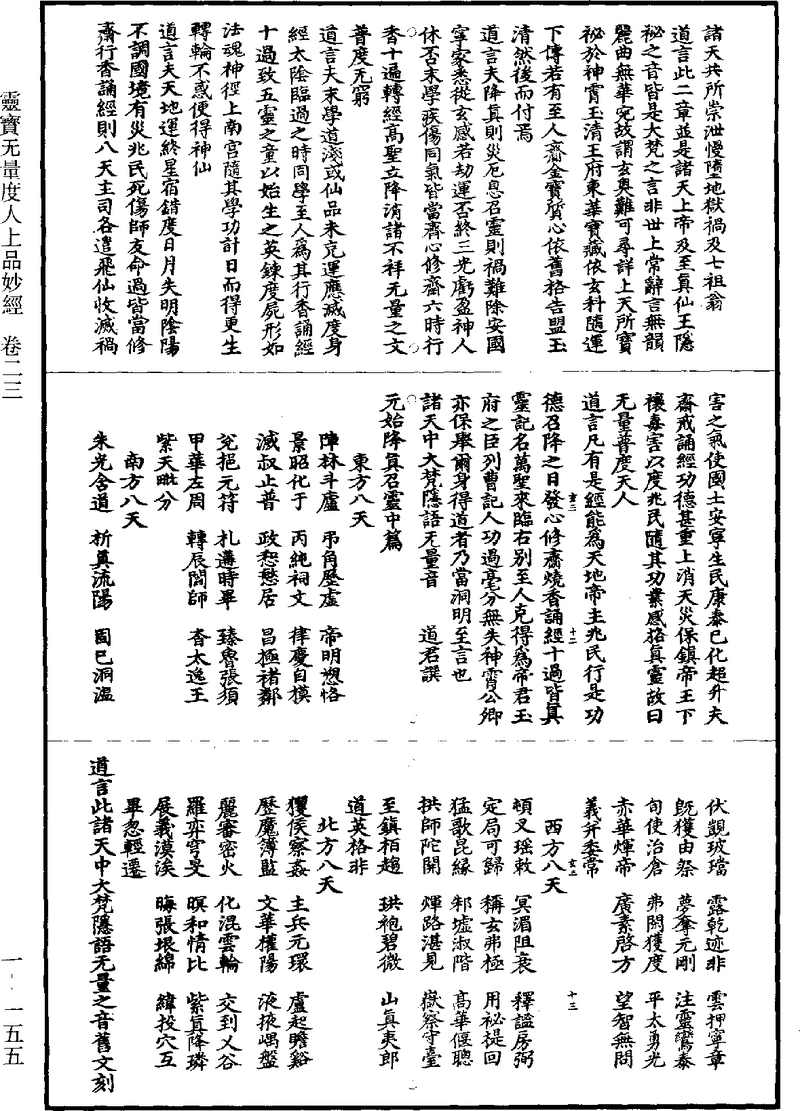 諸天共所崇泄慢墮地獄禍及七祖翁
道言此二章並是諸天上帝及至真仙王隱
祕之音皆是大梵之言非世上常辭言無韻
麗曲無華宛故謂玄奧難可尋詳上天所寶
祕於神霄玉清王府東華寶藏依玄科隨運
下傳若有至人齋金寶質心依舊格告盟玉
清然後而付焉
道言夫降真則災厄息召靈則禍難除安國
寧家悉從玄感若劫運否終三光虧盈神人
休否末學疾傷同氣皆當齋心修齋六時行
香十過轉經高聖立降消諸不祥无量之文
普度无窮
道言夫末學道淺或仙品未充運應滅度身
經太陰臨過之時同學至人為其行香誦經
十過致五靈之童以始生之英鍊度屍形如
法魂神徑上南宮隨其學功計日而得更生
轉輪不惑便得神仙
道言夫天地運終星宿錯度日月失明陰陽
不調國境有災兆民死傷師友命過皆當修
齋行香誦經則八天主司各遣飛仙收滅禍
靈寶无量度人上品妙經　卷二三
害之氣使國土安寧生民康泰已化超升夫
齋戒誦經功德甚重上消天災保鎮帝王下
禳毒害以度兆民隨其功業感格真靈故曰
无量普度天人
道言凡有是經能為天地帝主兆民行是功
德召降之日發心修齋燒香誦經十過皆真
靈記名萬聖來臨右別至人克得為帝君玉
府之臣列曹記人功過毫分無失神霄公卿
亦保舉爾身得道者乃當洞明至言也
諸天中大梵隱語无量音　道君譔
元始降真召靈中篇
東方八天
陣林斗盧　弔角歷虛　帝明愬恪
景昭化于　丙純祠文　律慶自模
滅叔止普　政恕愁居　昌極褚鄰
兗挹元符　扎邁時畢　臻魯張須
甲華左周　轉辰閻師　杳太逸王
紫天毗分
南方八天
朱光含道　析真流陽　固巳洞溫
伏觀玻璫　露乾迹非　雲押寧章
旣獲由祭　夢奪元剛　注靈鸞泰
旬使治倉　弗開獲度　平太勇光
赤華煇帝　廣素啓方　望智無問
義弁委常
西方八天
頓叉瑤敕　冥湄阻衰　釋謐房弼
定局可歸　稱玄弗極　用祕提回
猛歌昆緣　邾墟淑階　高華偃聰
拱師陀開　煇路湛見　嶽察守臺
至鎮栢趨　珙袍碧微　山真夷郎
道英格非
北方八天
玃侯察姦　主兵元環　盧起瞻谿
歷魔薄監　文華權陽　液掖嵎盤
麗審密火　化混雲輪　交到乂谷
羅弈穹旻　暝和情比　紫真降璘
展義漠渼　晦張垠綿　緯投穴互
畢忽輕遷
道言此諸天中大梵隱語无量之音舊文刻
一－一五五